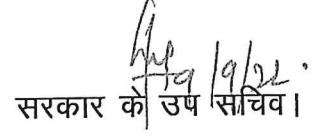 19/9/22.
सरकार के उप सचिव।